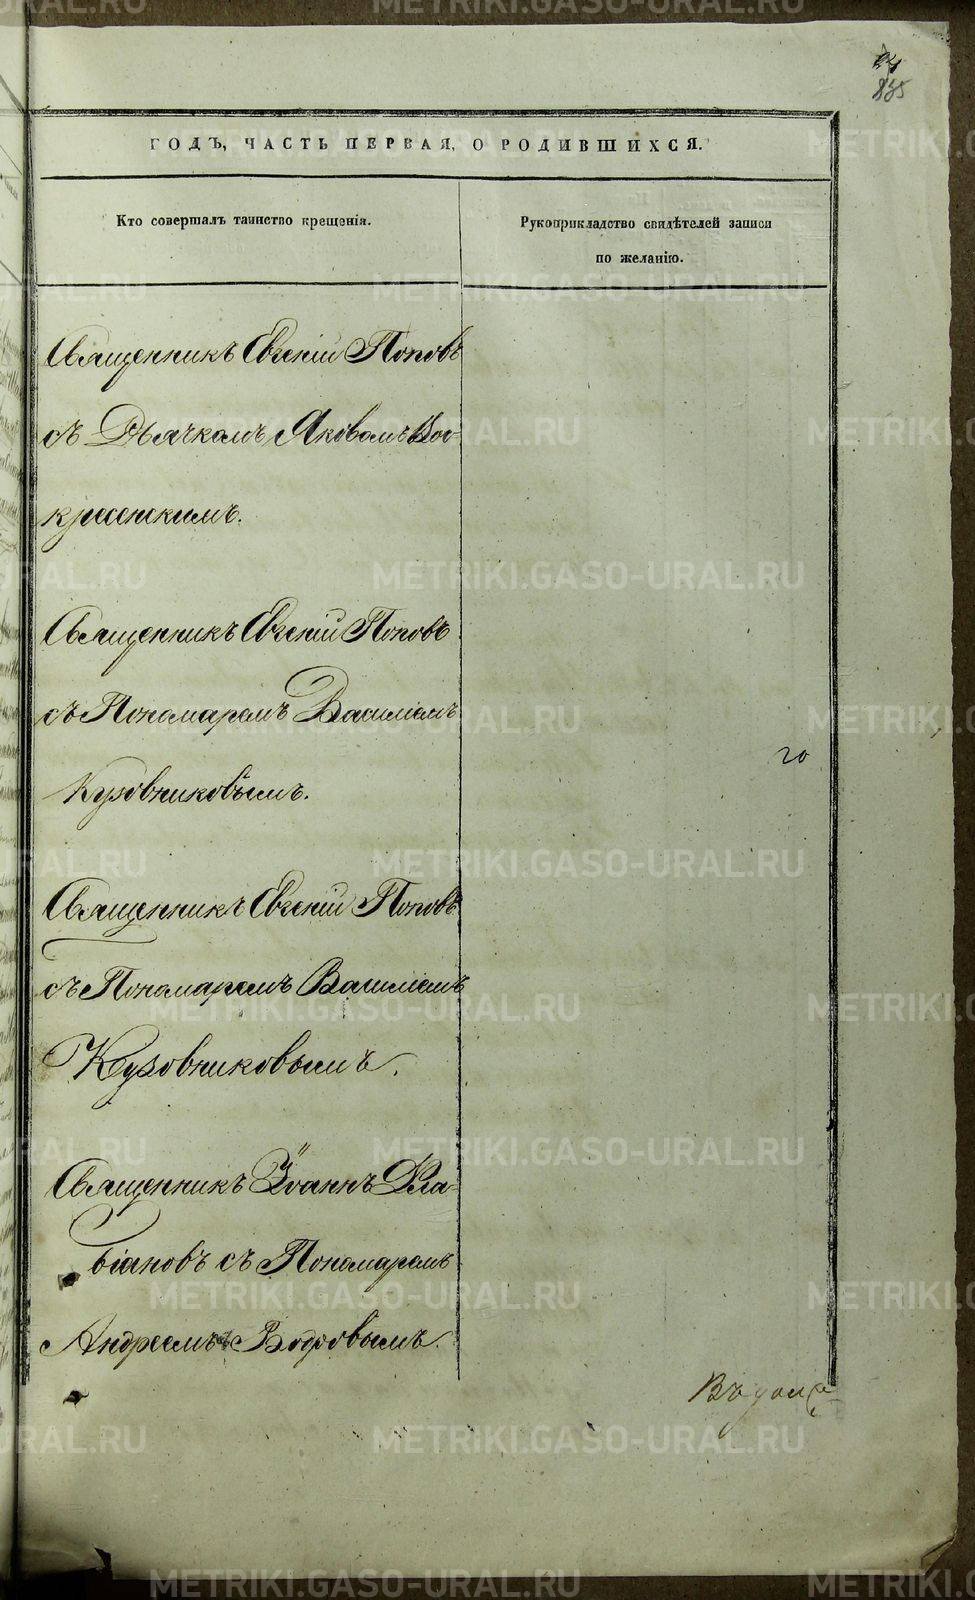 835
ГОДЪ, ЧАСТЬ ПЕРВАЯ, О РОДИВШИХСЯ.
Кто совершалъ таинство крещенія.
Рукоприкладство свидѣтелей записи
по желанію.
Священникъ Евгеній Поповъ
съ Дьячкомъ Яковомъ Вос-
кресенскимъ.
Священникъ Евгеній Поповъ
съ Пономаремъ Василіемъ
Кузовниковымъ.
го
Священникъ Евгеній Поповъ
съ Пономаремъ Василіемъ
Кузовниковымъ.
Священникъ Іоаннъ Фла-
віановъ съ Пономаремъ
Андреемъ Бобровымъ.
METRIKI.GASO-URAL.RU